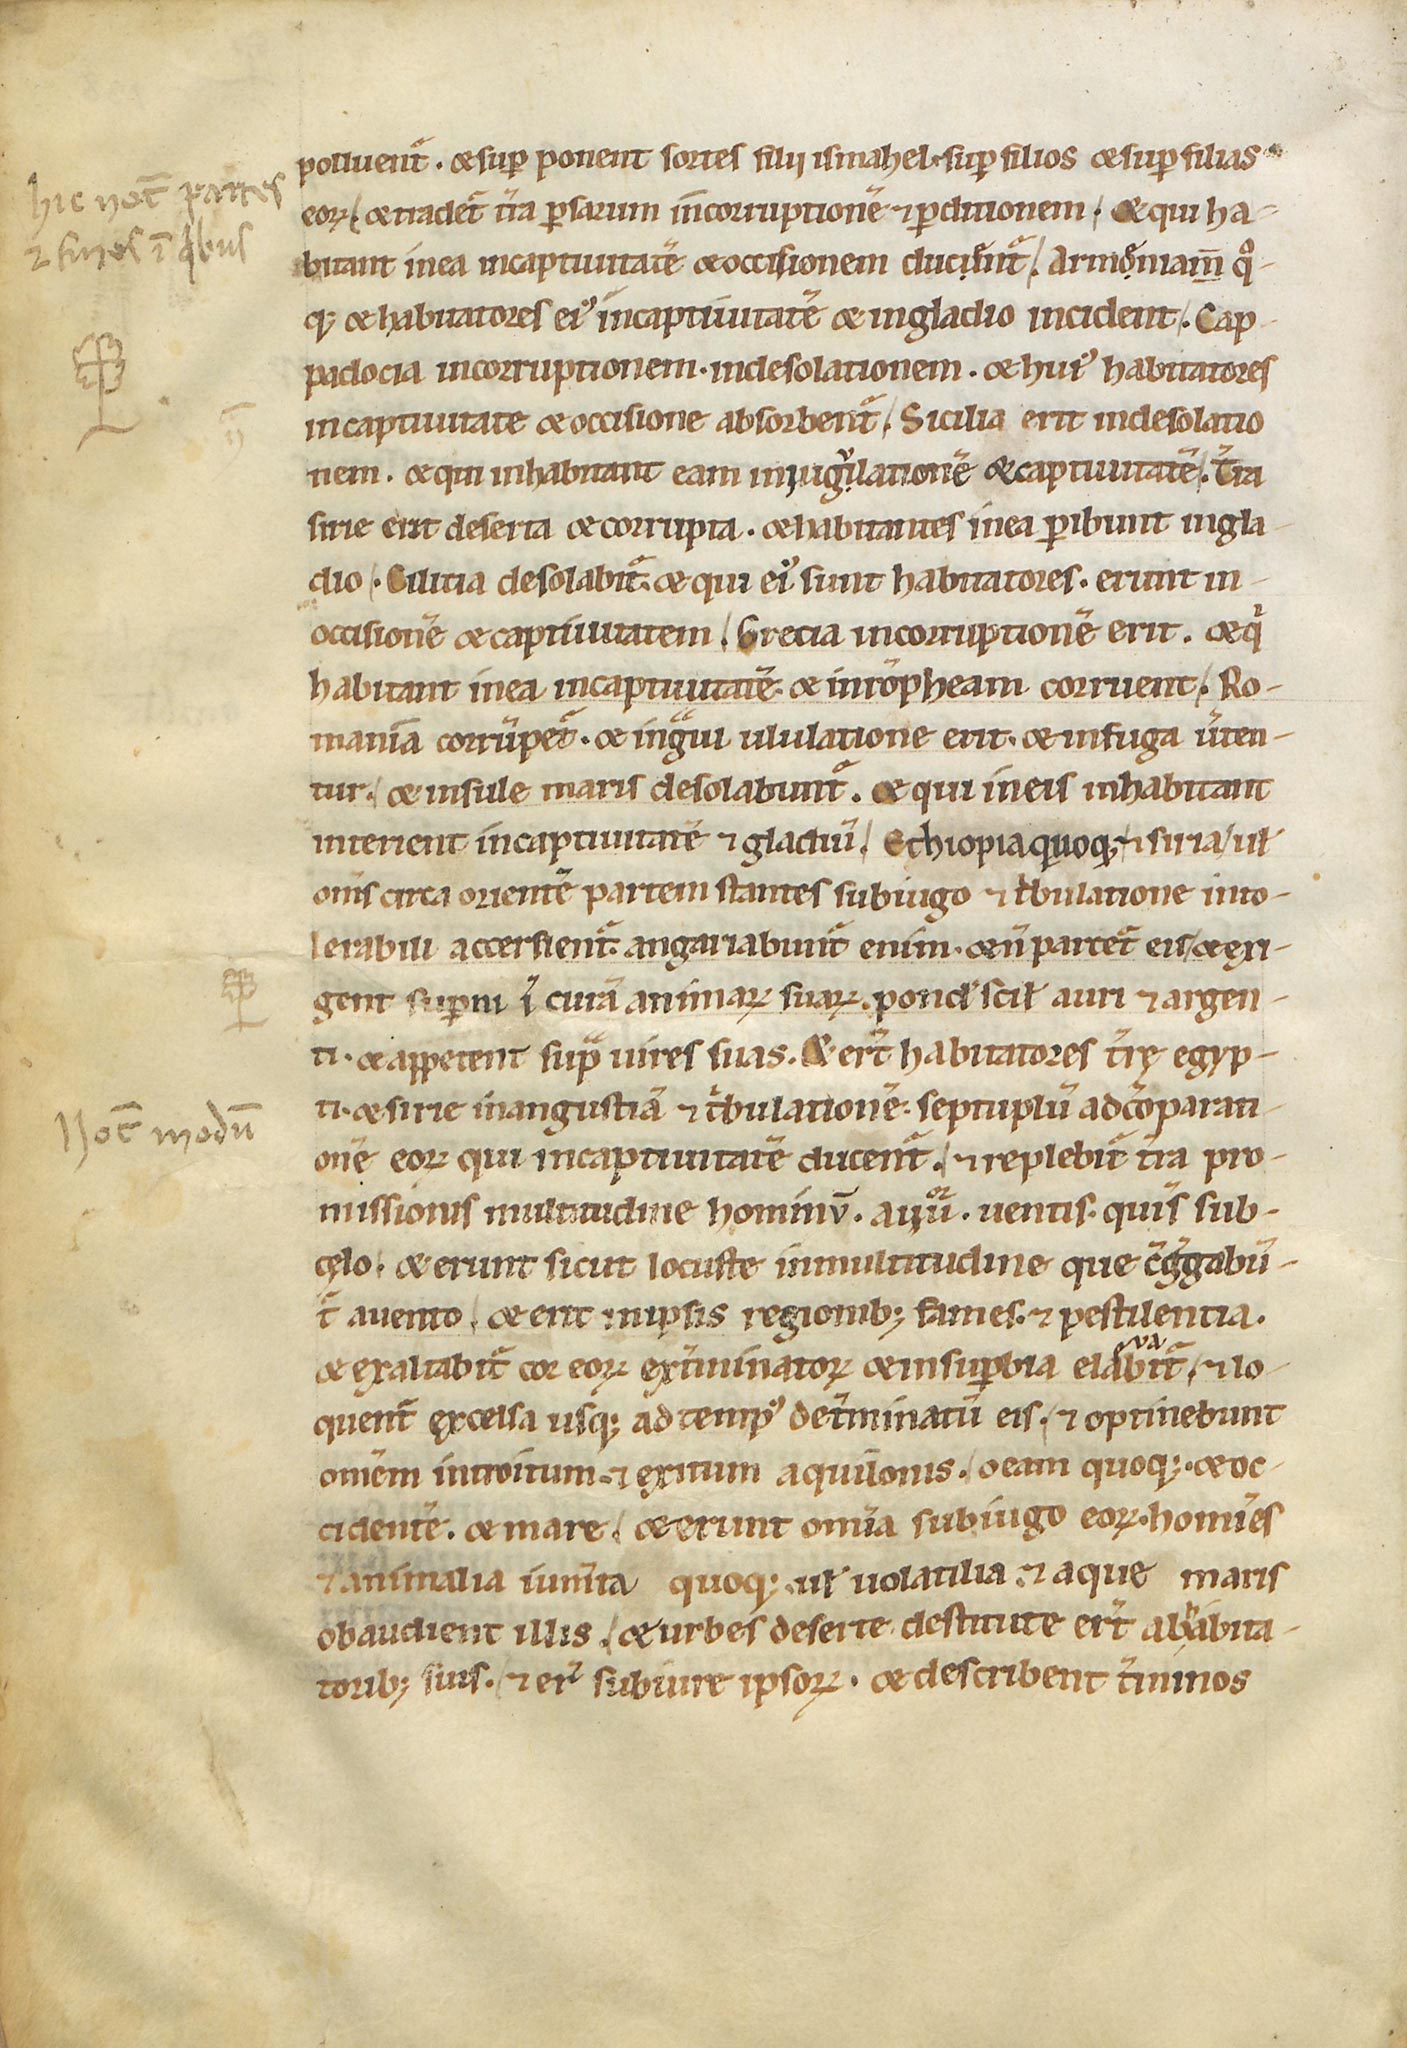 hic not̄ partes
⁊ fines ī qͥbus
polluent᷑ . ⁊ suꝑ ponent sortes filii ismahel . suꝑ filios ⁊ suꝑ filias
eoꝝ / ⁊ tradet᷑ tr̄a ꝑsarum incorruptionē ⁊ ꝑditionem / . Et qui ha-
bitant inea incaptiuitatē ⁊ occisionem ducūnt᷑ / . Armęniam̄ qͦ-
qꝫ ⁊ habitatores eiꝰ incaptiuitatē ⁊ ingladio incident / . Cap-
padocia incorruptionem . indesolationem . ⁊ huiꝰ habitatores
incaptiuitate ⁊ occisione absorbent᷑ / . Sicilia erit indesolatio
nem . ⁊ qui inhabitant eam iniugulationē ⁊ captiuitatē / . Tr̄a
sirie erit deserta ⁊ corrupta . ⁊ habitantes inea ꝑibunt ingla-
dio / . Cilicia desolabit᷑ . ⁊ qui eiꝰ sunt habitatores . erunt in-
occisionē ⁊ captiuitatem / . Grecia incorruptionē erit . ⁊ qͥ
habitant inea incaptiuitatē . ⁊ intropheam corruent / . Ro-
mania corrūpet᷑ . ⁊ ingͣui ululatione erit . ⁊ infuga u̓ten-
tur . / ⁊ insule maris desolabunt᷑ . ⁊ qui ineis inhabitant
interient incaptiuitatē ⁊ gladiū / . Ethiopia quoqꝫ ⁊ siria / ul̄
om̄s circa orientē partem stantes subiugo ⁊ tͥbulatione into-
lerabili accersient᷑ . angariabunt᷑ enim . ⁊ n̄ parcet᷑ eis / ⁊ exi-
gent suꝑni ī curā animaꝝ suaꝝ . pondꝰ scil̄ auri ⁊ argen-
ti . ⁊ appetent supͣ uires suas . Et er̄t habitatores tr̄ę egyp-
ti . ⁊ sirie inangustiā ⁊ tͥbulationē . septuplū adcōparati-
onē eoꝝ qui incaptiuitatē ducent᷑ . / ⁊ replebit᷑ tr̄a pro-
missionis multitudine hominū . a .iiijͦʳ. uentis . quis sub-
cęlo . ⁊ erunt sicut locuste inmultitudine que ꝯgͤgabū-
t᷑ auento / . ⁊ erit inipsis regionibꝫ fames . ⁊ pestilentia .
⁊ exaltabit᷑ cor eoꝝ ext̓minatoꝝ ⁊ insuꝑbia eleuabit᷑ / . ⁊ lo-
quent᷑ excelsa usqꝫ ad tempꝰ det̓minatū eis . / ⁊ optinebunt
omēm introitum . ⁊ exitum aquilonis . / oeam quoqꝫ . ⁊ oc-
cidentē . ⁊ mare / . ⁊ erunt om̄ia subiugo eoꝝ . homīes
⁊ animalia iumīta quoqꝫ . ul̄ uolatilia . ⁊ aque maris
obaudient illis . / ⁊ urbes deserte destitute er̄t abhabita-
toribꝫ suis . / ⁊ er̄ subiure ipsoꝝ . ⁊ describent t̓minos
Not̄ modū